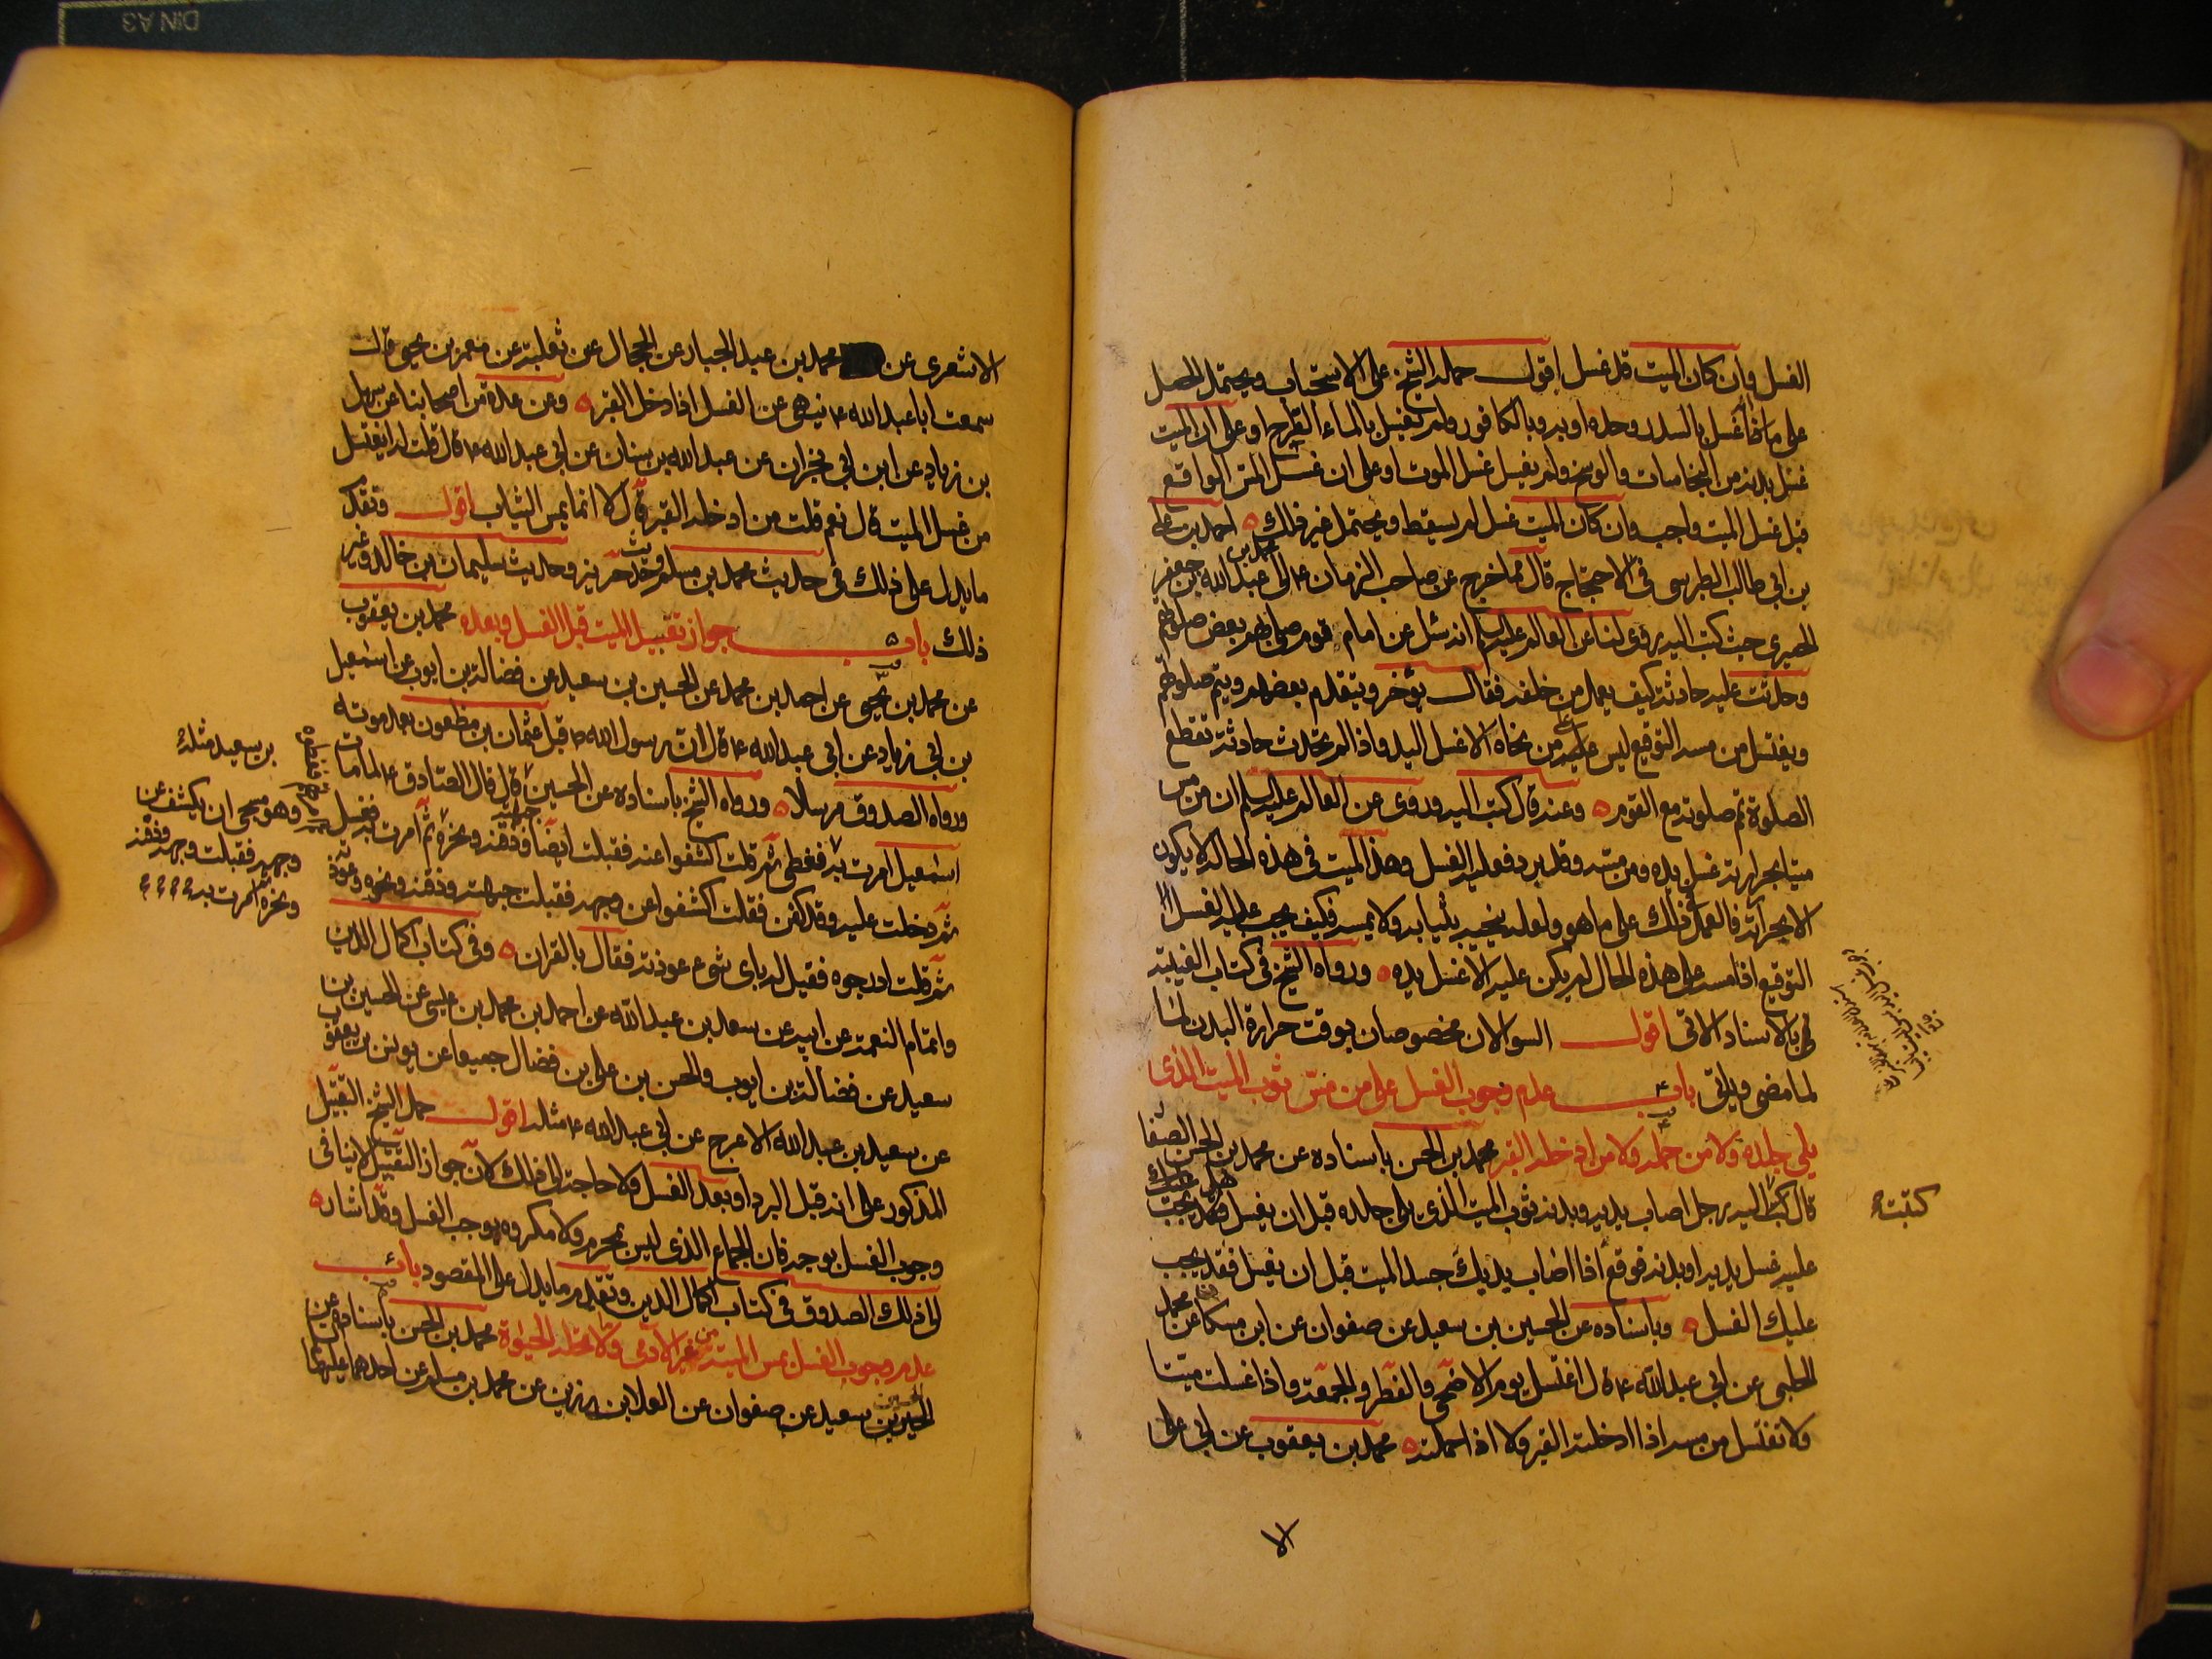 الغسل وان كان الميت قد غسل اقول حمله الشيخ على الاستحباب ويحتمل الحمل
على ما اذا غسل بالسدر وحده او به وبالكافور ولم يغسل بالماء القراح او على ان الميت
غسل بدنه من النجاسات والوسخ ولم يغسل غسل الموت او على ان غسل المس الواقع
قبل غسل الميت واجب وان كان الميت غسل لم يسقط ويحتمل غير ذلك احمد بن على
بن ابى طالب الطبرسى فى الاحتجاج قال مما خرج عن صاحب الزمان ع الى محمد بن عبد الله بن جعفر
الحميرى حيث كتب اليه روى لنا عن العالم عليه السلام انه سئل عن امام قوم صلى بهم بعض صلوتهم
وحدثت عليه حادثة كيف يعمل من خلفه فقال يؤخر ويتقدم بعضهم ويتم صلوتهم
ويغتسل من مسه التوقيع ليس على من نحاه الا غسل اليد واذا لم تحدث حادثة تقطع
الصلوة تمم صلوته مع القوم وعنه قال كتب اليه وروى عن العالم عليه السلم ان من مس
ميتا بحرارته غسل يده ومن مسه وقد برد فعليه الغسل وهذا الميت فى هذه الحال لا يكون
الا بحرارته فالعمل فى ذلك على ما هو ولعله ينحيه بثيابه ولا يمسه فكيف يجب عليه الغسل
التوقيع اذا مسه على هذه الحال لم يكن عليه الا غسل يده ورواه الشيخ فى كتاب الغيبة
بالاسناد الاتى اقول السوالان مخصوصان بوقت حرارة البدن
لما مضى وياتى باب عدم وجوب الغسل على من مس ثوب الميت الذى
يلى جلده ولا من حمله ولا من ادخله القبر محمد بن الحسن باسناده عن محمد بن الحسن الصفار
قال كتبت اليه رجل اصاب يديه وبدنه ثوب الميت الذى يلى جلده قبل ان يغسل هل يجب
عليه غسل يديه او بدنه فوقع اذا اصاب يديك جسد الميت قبل ان يغسل فقد يجب
عليك الغسل وباسناده عن الحسين بن سعيد عن صفوان عن ابن مسكان عن محمد
الحلبى عن ابى عبد الله ع قال اغتسل يوم الاضحى والفطر والجمعة واذا غسلت ميتا
ولا تغتسل من مسه اذا ادخلته القبر ولا اذا حملته محمد بن يعقوب عن ابى على
كتبت
الا
الاشعرى عن محمد بن عبد الجبار عن الحجال عن ثعلبة عن معمر بن يحيى قالت
سمعت ابا عبد الله ع ينهى عن الغسل اذا دخل القبر وعن عدة من اصحابنا عن سهل
بن زياد عن ابن ابى نجران عن عبد الله بن سنان عن ابى عبد الله ع قال قلت له ايغتسل
من غسل الميت قال نعم قلت من ادخله القبر قال لا انما يمس الثياب اقول وتقدم
ما يدل على ذلك فى حديث محمد بن مسلم وحديث حريز وحديث سليمان بن خالد وغير
ذلك باب جواز تقبيل الميت قبل الغسل وبعده محمد بن يعقوب
عن محمد بن يحيى عن احمد بن محمد عن الحسين بن سعيد عن فضالة بن ايوب عن اسمعيل
بن ابى زياد عن ابى عبد الله ع قال ان رسول الله ص قبل عثمان بن مظعون بعد موته
ورواه الصدوق مرسلا ورواه الشيخ باسناده عن الحسين قال قال الصادق ع لما مات
اسمعيل امرت به فغطى ثم قلت اكشفوا عنه فقبلت ايضا جبهته وذقنه ونحره ثم امرت به فغسل
ثم دخلت عليه وقد كفن فقلت اكشفوا عن وجهه فقبلت جبهته وذقنه ونحره وعوذته
ثم قلت ادرجوه فقيل له باى شىء عوذته فقال بالقران وفى كتاب اكمال الدين
واتمام النعمة عن ابيه عن سعد بن عبد الله عن احمد بن محمد بن عيسى عن الحسين بن
سعيد عن فضالة بن ايوب والحسن بن على بن فضال جميعا عن يونس بن يعقوب
عن سعيد بن عبد الله الاعرج عن ابى عبد الله ع مثله اقول حمل الشيخ التقبيل
المذكور على انه قبل البرد او بعد الغسل ولا حاجة الى ذلك لان جواز التقبيل لا ينافى
وجوب الغسل بوجه فان الجماع الذى ليس بمحرم ولا مكروه يوجب الغسل وقد اشار
الى ذلك الصدوق فى كتاب اكمال الدين وتقدم ما يدل على المقصود باب
عدم وجوب الغسل بمس الميتة من غير الادمى وما لا تحله الحيوة محمد بن الحسن باسناده عن
الحسين بن سعيد عن صفوان عن العلا بن رزين عن محمد بن مسلم عن احدهما عليهما
بن سعيد مثله
وهو مسجى ان يكشف عن
وجهه فقبلت وجهه وذقنه
ونحره ثم امرت به